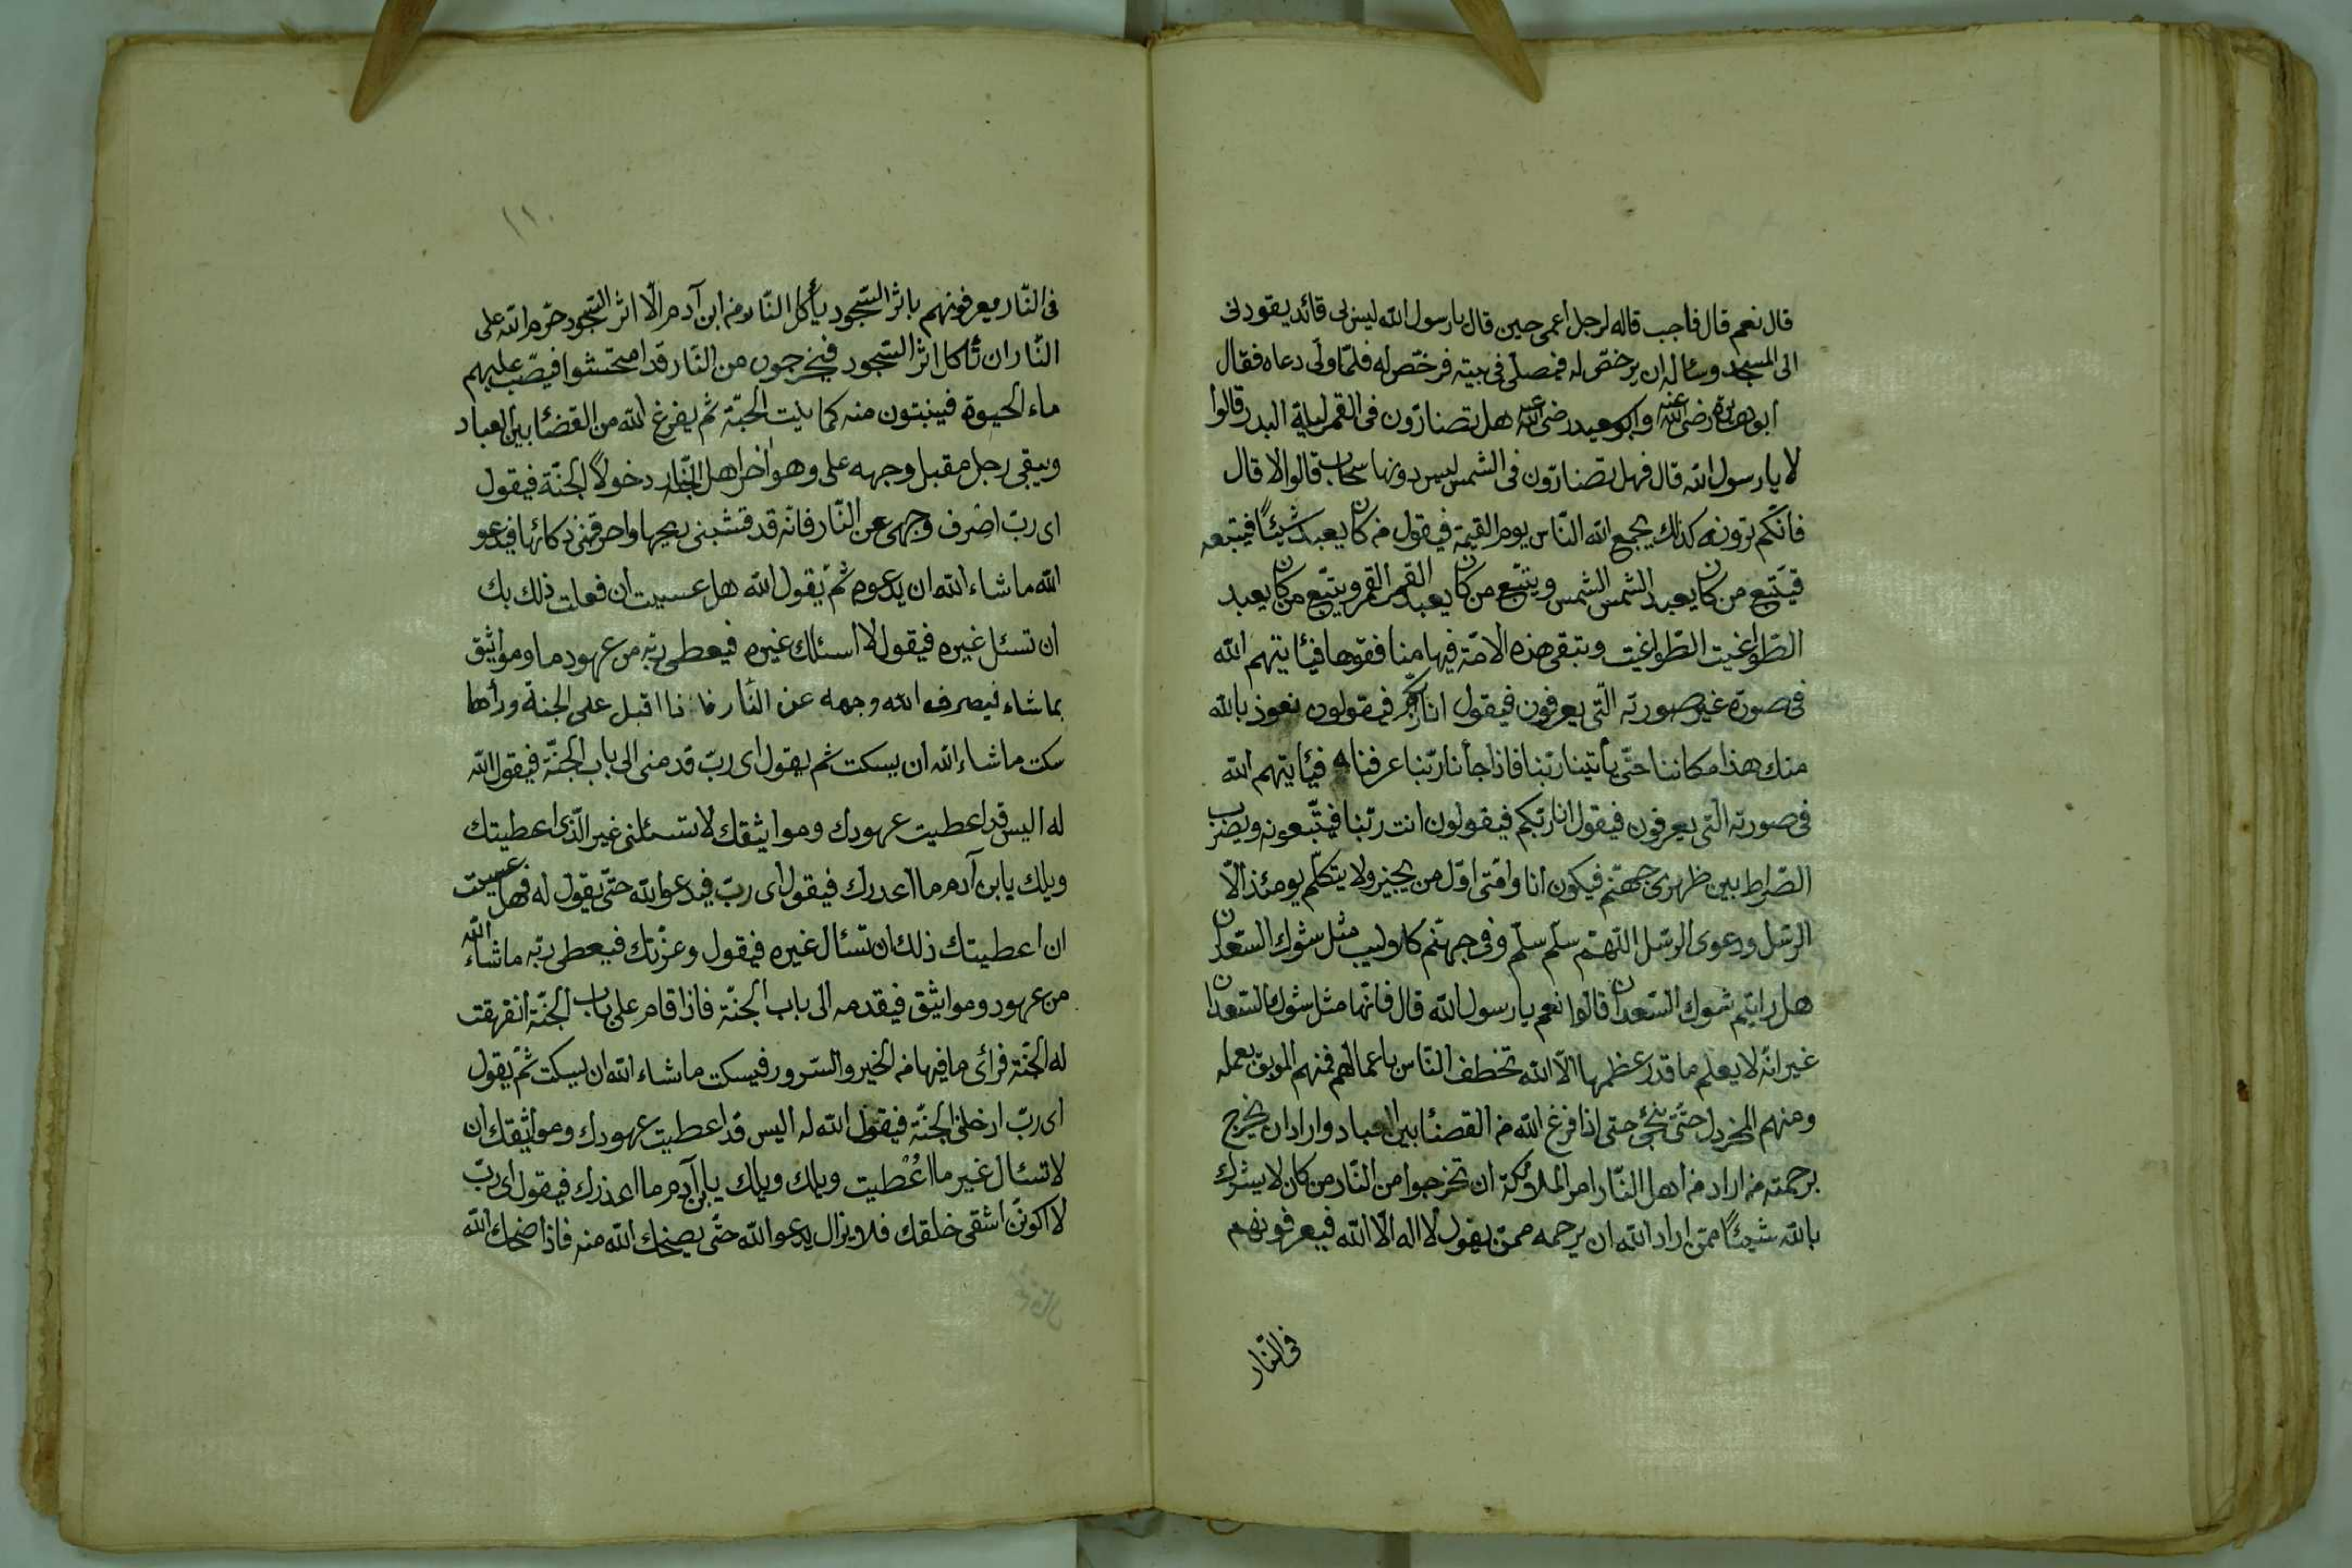 قال نعم قال فاجب قاله لرجل اعمى حين قال يارسول الله ليس لى قائد يقودنى
الى المسجد وسئاله ان يرخص له فيصلى فى بيته فرخص له فلما ولى دعاه فقال
ابو هريرة رضى الله عنه وابو سعيد رضى الله عنه هل تضارّون فى القمر ليلة البدر قالوا
لا يارسول الله قال فهل تضارّون فى الشمس ليس دونها سحاب قالوا لا قال
فانّكم ترونه كذلك يجمع الله النّاس يوم القيمة فيقول من كان يعبد شيئًا فيتبعه
فيتّبع من كان يعبد الشمس الشمس ويتّبع من كان يعبد القمر القمر ويتّبع من كان يعبد
الطّواغيت الطّواغيت وتبقى هذه الامّة فيها منافقوها فيئاتيهم الله
فى صورة غير صورته الّتى يعرفون فيقول انا ربّكم فيقولون نعوذ بالله
منك هذا مكاننا حتّى يأتينا ربّنا فاذا جأنا ربّنا عرفناه فيئاتيهم الله
فى صورته الّتى يعرفون فيقول انا ربّكم فيقولون انت ربّنا فيتّبعونه ويضرب
الصّراط بين ظهرى جهنّم فيكون انا وامّتى اوّل من يجيز ولا يتكلّم يومئذ الّا
الرسّل ودعوى الرسّل اللّهمّ سلّم سلّم وفى جهنّم كلاليب مثل شوك السّعدان
هل رايتم شوك السّعدان قالوا نعم يارسول الله قال فانّها مثل شوك السّعدان
غير انّه لا يعلم ما قدر عظمها الّا الله تخطف النّاس باعمالهم فمنهم الموبق بعمله
ومنهم المخردل حتّى ينجّى حتى اذا فرغ الله من القضئا بين العباد واراد ان يخرج
برحمته من اراد من اهل النّار امر الملائكة ان تخرجوا من النّار من كان لا يشرك
بالله شيئًا ممّن اراد الله ان يرحمه ممّن يقول لا اله الّا الله فيعرفونهم
فى النّار
١١٠
فى النّار يعرفونهم باثر السّجود يأكل النّار من ابن آدم الّا اثر السّجود حرّم الله على
النّار ان تأكل اثر السّجود فيخرجون من النّار قد امتحشوا فيصبّ عليهم
ماء الحيوة فينبتون منه كما ينبت الحبّة ثم يفرغ الله من القضئا بين العباد
ويبقى رجل مقبل وجهه على وهو اخر اهل النّار دخولًا الجنّة فيقول
اى ربّ اصرف وجهى عن النّار فانّه قد قشبنى ريحها واحرقنى ذكائها فيدعو
الله ما شاء الله ان يدعوه ثم يقول الله هل عسيت ان فعلت ذلك بك
ان تسئل غيره فيقول لا اسئلك غيره فيعطى ربّه من عهود ما ومواثيق
بماشاء فيصرف الله وجهه عن النّار فاذا اقبل على الجنة ورأها
سكت ما شاء الله ان يسكت ثم يقول اى ربّ قدمنى الى باب الجنّة فيقول الله
له اليس قد اعطيت عهودك ومواثيقك لا تسئلنى غير الّذى اعطيتك
ويلك يا ابن آدم ما اغدرك فيقول اى ربّ فيدعو الله حتّى يقول له فهل عسيت
ان اعطيتك ذلك ان تسئال غيره فيقول وعزّتك فيعطى ربّه ماشاء الله
من عهود ومواثيق فيقدمه الى باب الجنّة فاذا قام على باب الجنّة انفهقت
له الجنّة فرأى ما فيها من الخير والسّرور فيسكت ما شاء الله ان يسكت ثم يقول
اى ربّ ادخلنى الجنّة فيقول الله له اليس قد اعطيت عهودك ومواثيقك ان
لا تسئال غير ما اعْطيت ويلك ويلك يا ابن آدم ما اغدرك فيقول اى ربّ
لا اكوننّ اشقى خلقك فلا يزال يدعو الله حتّى يضحك الله منه فاذا ضحك الله